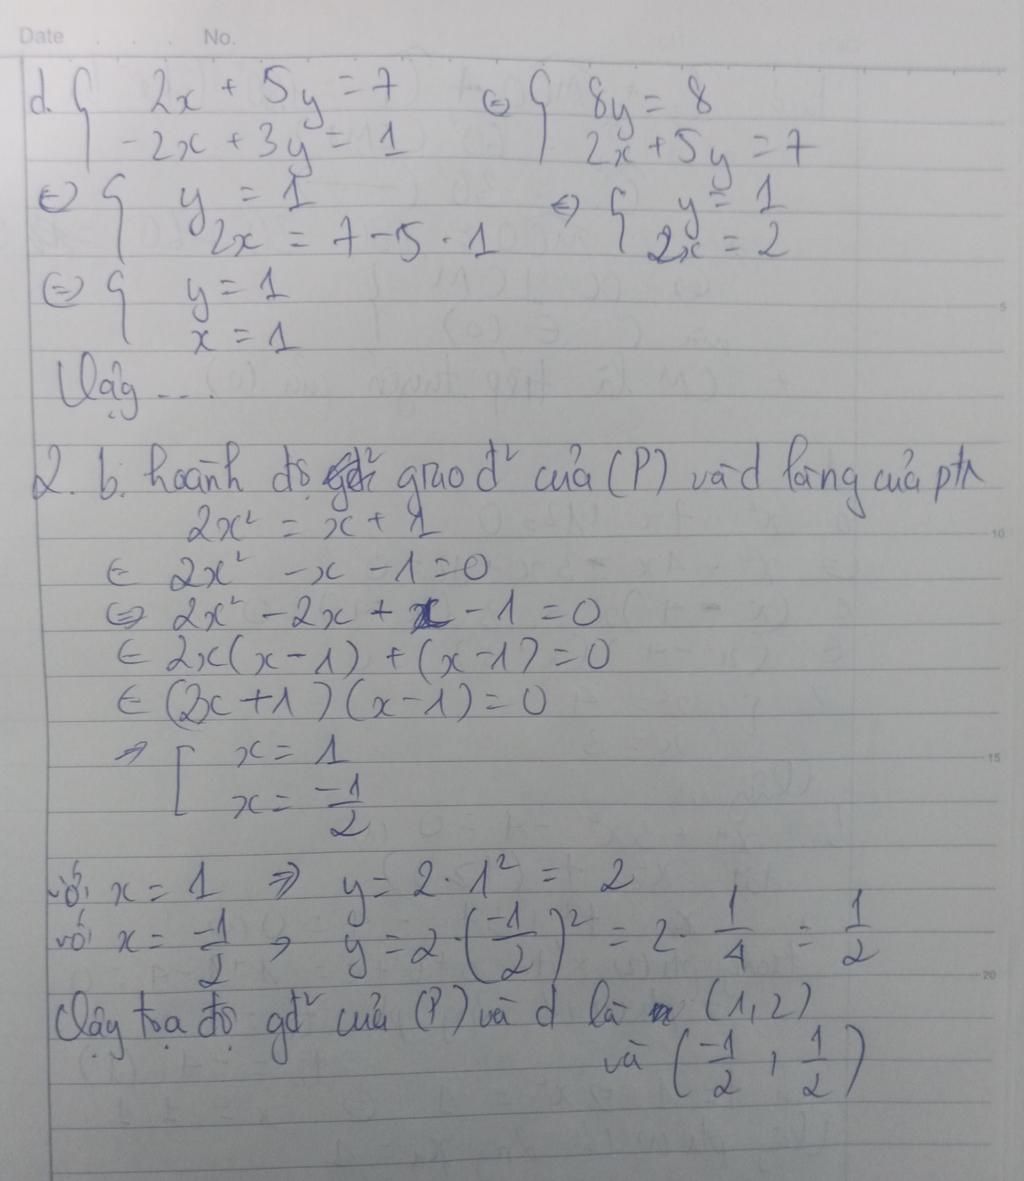 Date . . . No.
d. { 2x + 5y = 7 ⇔ { 8y = 8
-2x + 3y = 1 2x + 5y = 7
⇔ { y = 1 ⇔ { y = 1
2x = 7 - 5 . 1 2x = 2
⇔ { y = 1
x = 1
Vậy ....
2. b. hoành độ giao đ² của (P) và d là ng của ptr
2x² = x + 1
⇔ 2x² - x - 1 = 0
⇔ 2x² - 2x + x - 1 = 0
⇔ 2x(x - 1) + (x - 1) = 0
⇔ (2x + 1)(x - 1) = 0
⇒ [ x = 1
x = -1/2
5
10
15
20
với x = 1 ⇒ y = 2 . 1² = 2
với x = -1/2 ⇒ y = 2 . (-1/2)² = 2 . 1/4 = 1/2
Vậy tọa độ gđ² của (P) và d là (1, 2)
và (-1/2, 1/2)